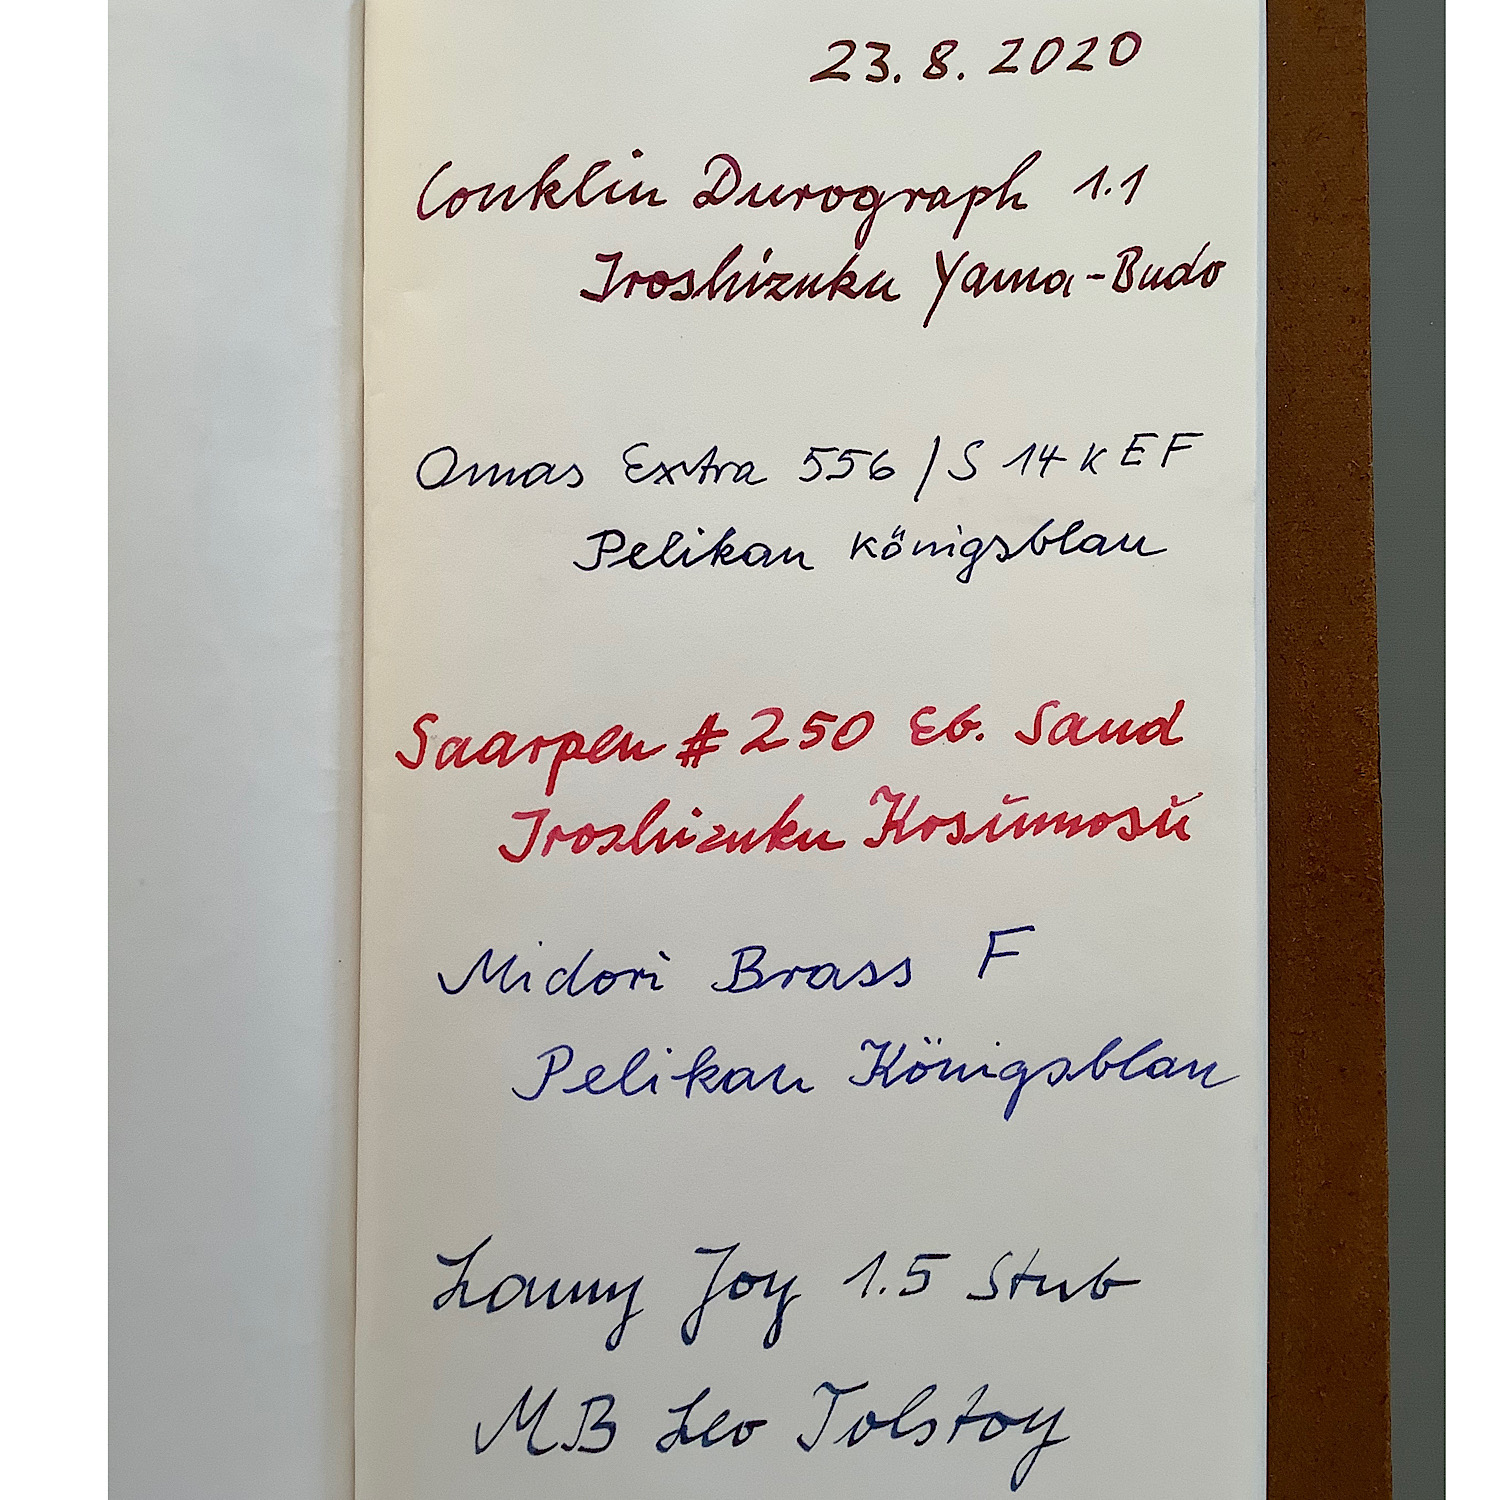 23.8.2020
Conklin Durograph 1.1
Iroshizuku Yama-Budo
Omas Extra 556/S 14K EF
Pelikan Königsblau
Saarpen #250 Eb. Sand
Iroshizuku Kosumosu
Midori Brass F
Pelikan Königsblau
Lamy Joy 1.5 Stub
MB Leo Tolstoy